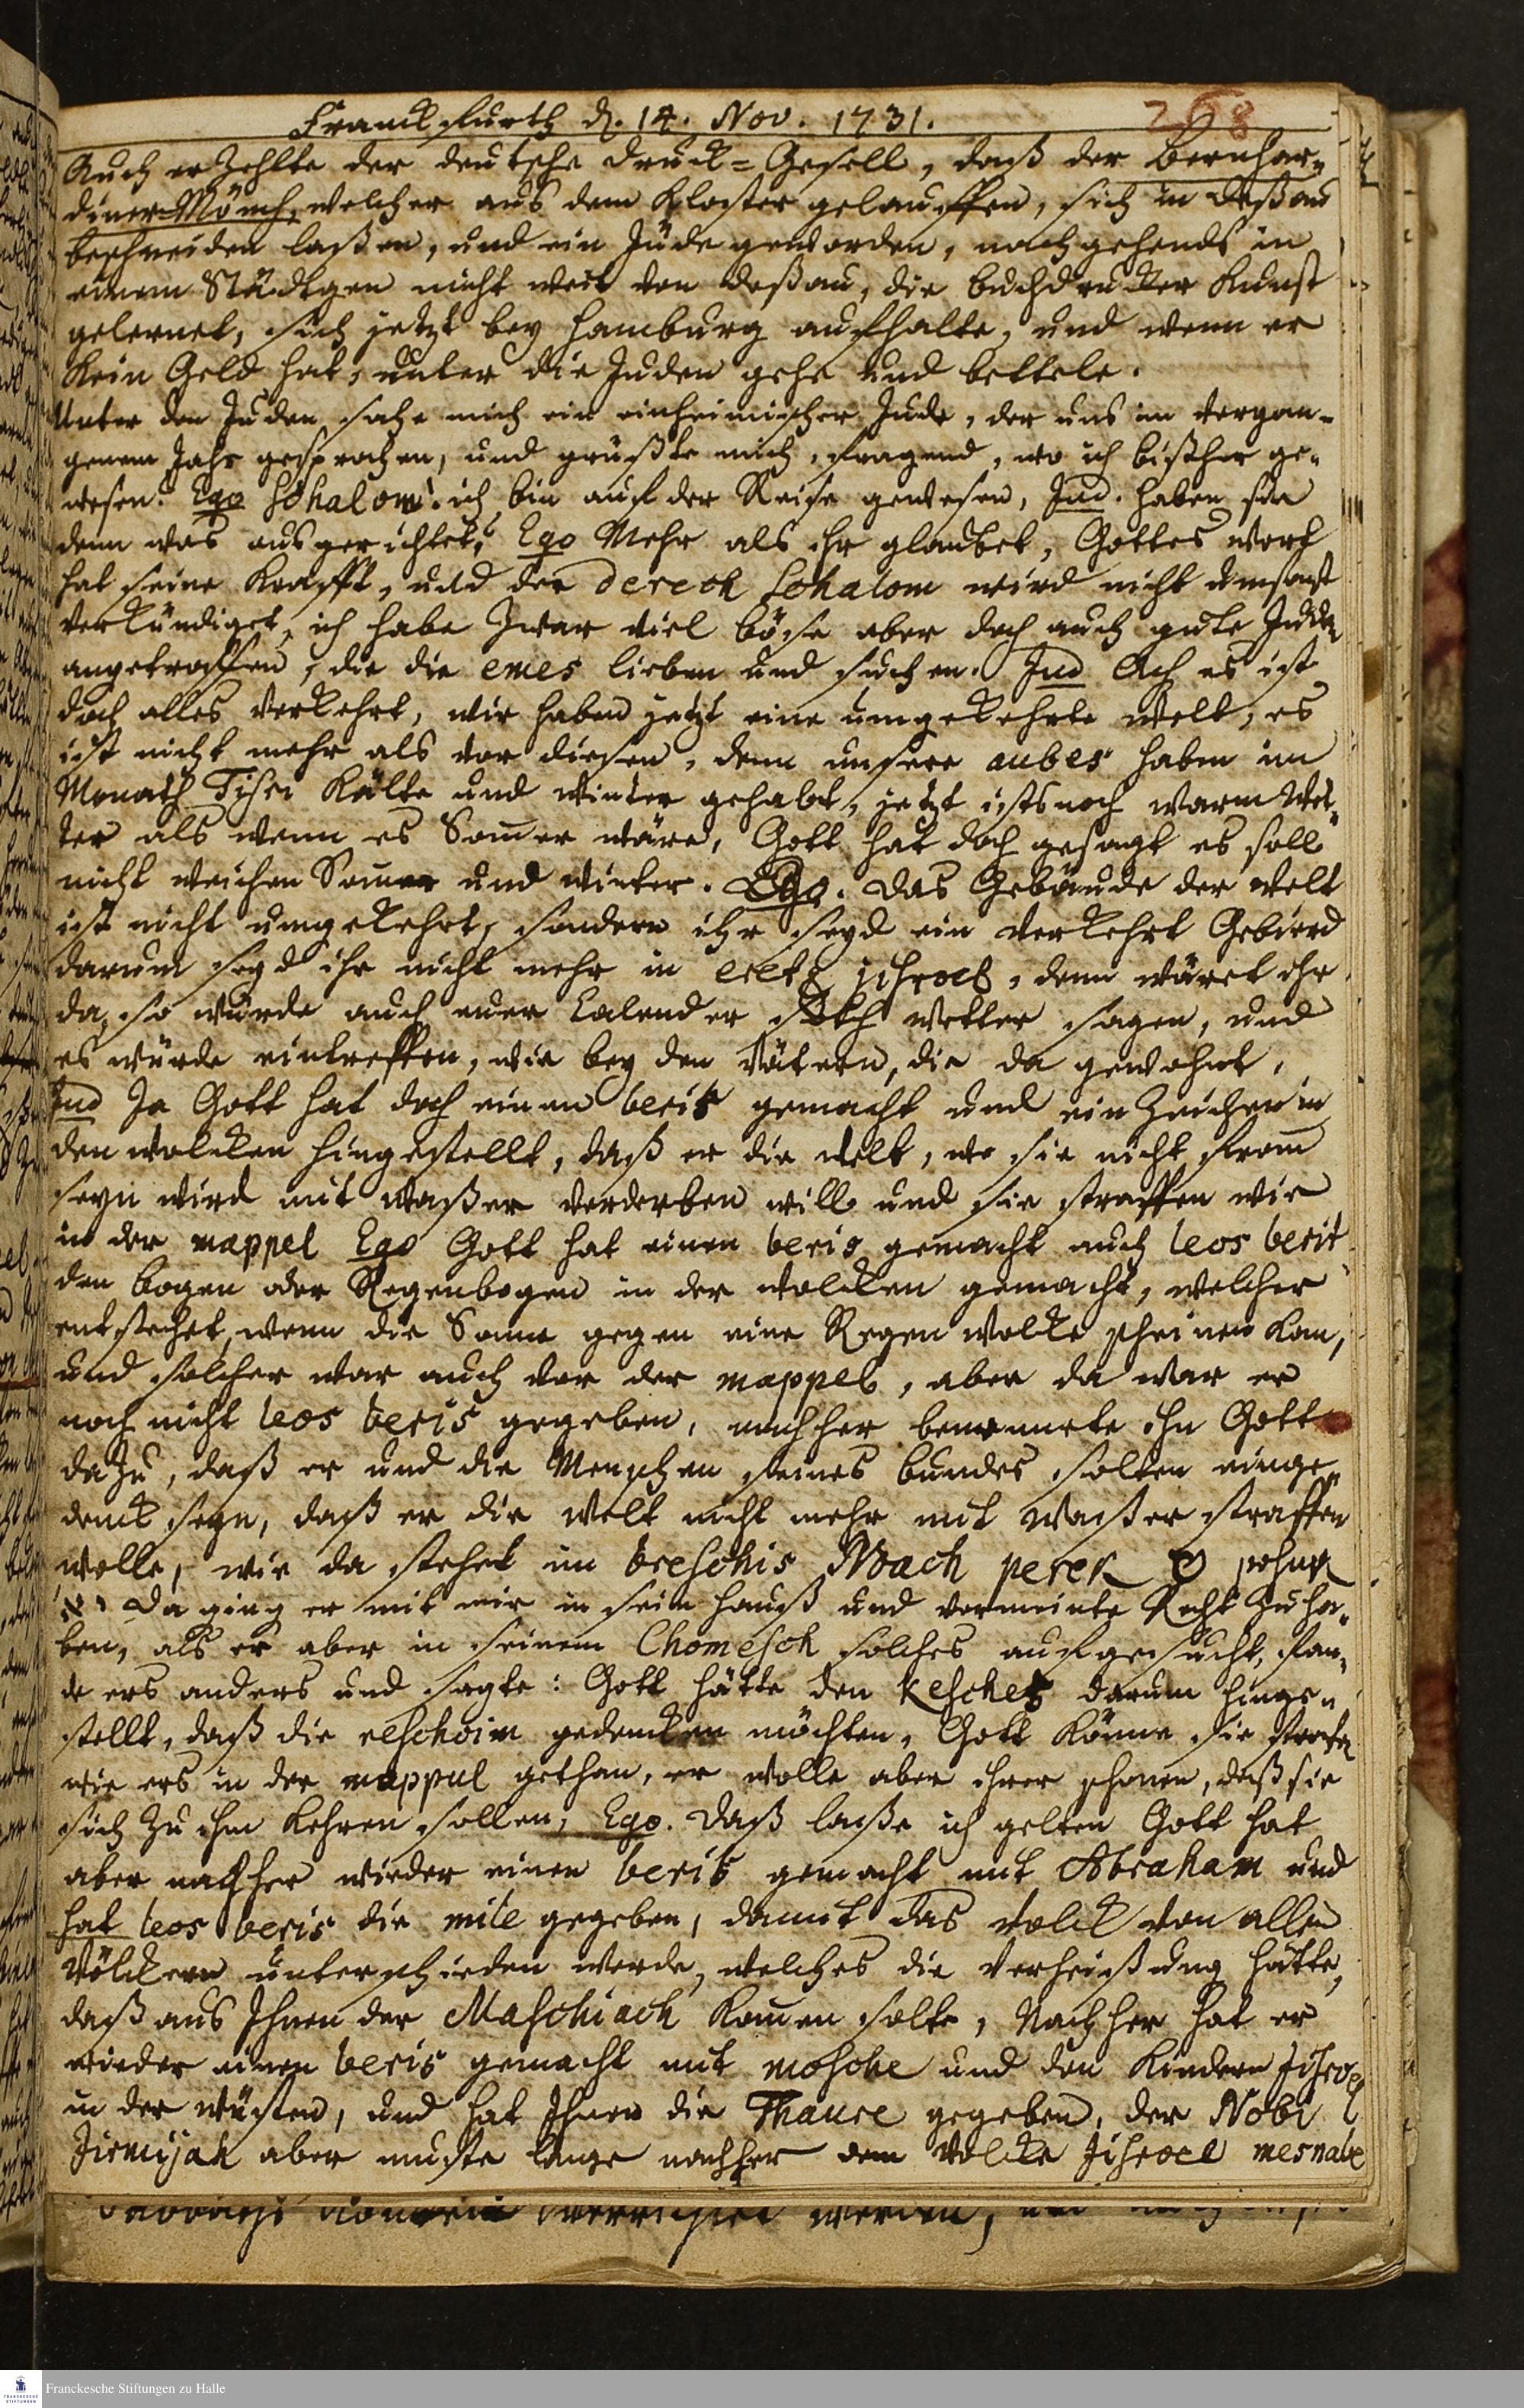 Franckfurth d. 14. Nov. 1731.
268
Auch erzehlte der deutsche Druck-Gesell, daß der Bernhar-
diner-Mönch, welcher aus dem Kloster gelauffen, sich in Deßau
beschneiden laßen, und ein Jude geworden, nachgehends in
einem Städtgen nicht weit von Deßau, die Buchdrucker Kunst
gelernet, sich jetzt bey Hamburg aufhalte, und wenn er
kein Geld hat, unter die Juden gehe und bettele.
Unter den Juden sahe mich ein einheimischer Jude, der uns im vergan-
genem Jahr gesprochen, und grüßte mich, fragend, wo ich bißher ge-
wesen? Ego Schalom! ich bin auf der Reise gewesen, Jud. haben sie
denn was ausgerichtet? Ego Mehr als ihr glaubet, Gottes wort
hat seine Krafft, und der derech schalom wird nicht umsonst
verkündiget, ich habe zwar viel böse aber doch auch gute Juden
angetroffen, die die emes lieben und suchen. Jud Ach es ist
doch alles verkehrt, wir haben jetzt eine umgekehrte Welt, es
ist nicht mehr als vor diesen, denn unsere aubes haben im
Monath Tisri Kälte und Winter gehabt, jetzt ists noch warm Wet-
ter als wenn es Som̄er wäre, Gott hat doch gesagt es soll
nicht weichen Som̄er und Winter. Ego. Das Gebäude der Welt
ist nicht umgekehrt, sondern ihr seyd ein verkehrt Gebäud
darum seyd ihr nicht mehr in eretz jisroel, denn wäret ihr
da, so würde auch euer Calender Wetter sagen, und
es würde eintreffen, wie bey den Vätern, die da gewohnt.
Jud Ja Gott hat doch einen beris gemacht und ein Zeichen in
den wolcken hingestellt, daß er die Welt, wo sie nicht from̄
seyn wird mit waßer verderben will und sie straffen wie
in der mappel Ego Gott hat einen beris gemacht auch leos berit
den bogen oder Regenbogen in der wolcken gemacht, welcher
entstehet, wenn die Sonne gegen eine Regen wolke scheinen kan,
und solcher war auch vor der mappel, aber da war er
noch nicht leos beris gegeben, nachher benennete ihn Gott
dazu, daß er und die Menschen seines bundes solten einge-
denck seyn, daß er die Welt nicht mehr mit waßer straffen
wolle, wie da stehet im breschis Noach perek ט posuk
יא. Da ging er mit mir in sein Hauß und vermeinte Recht zu ha-
ben, als er aber in seinem Chomesch solches aufgesucht, fan-
de ers anders und sagte: Gott hätte den keschet darum hinge-
stellt, daß die elschoim gedencken möchten, Gott könne sie strafen
wie ers in der mappul gethan, er wolle aber ihrer schonen, daß sie
sich zu ihm kehren sollen, Ego. Daß laße ich gelten Gott hat
aber nachher wieder einen beris gemacht mit Abraham und
hat leos beris die mile gegeben, damit das volck von allen
Völckern unterschieden werde, welches die Verheißung hätte,
daß aus Ihnen der Maschiach kom̄en solte, Nachher hat er
wieder einen beris gemacht mit mosche und den Kindern Jisroel
in der wüsten, und hat Ihnen die Thaure gegeben, der Nobi
Jirmijah aber muste lange nachher dem Volcke Jisroel mesnabe
werden,
Franckesche Stiftungen zu Halle